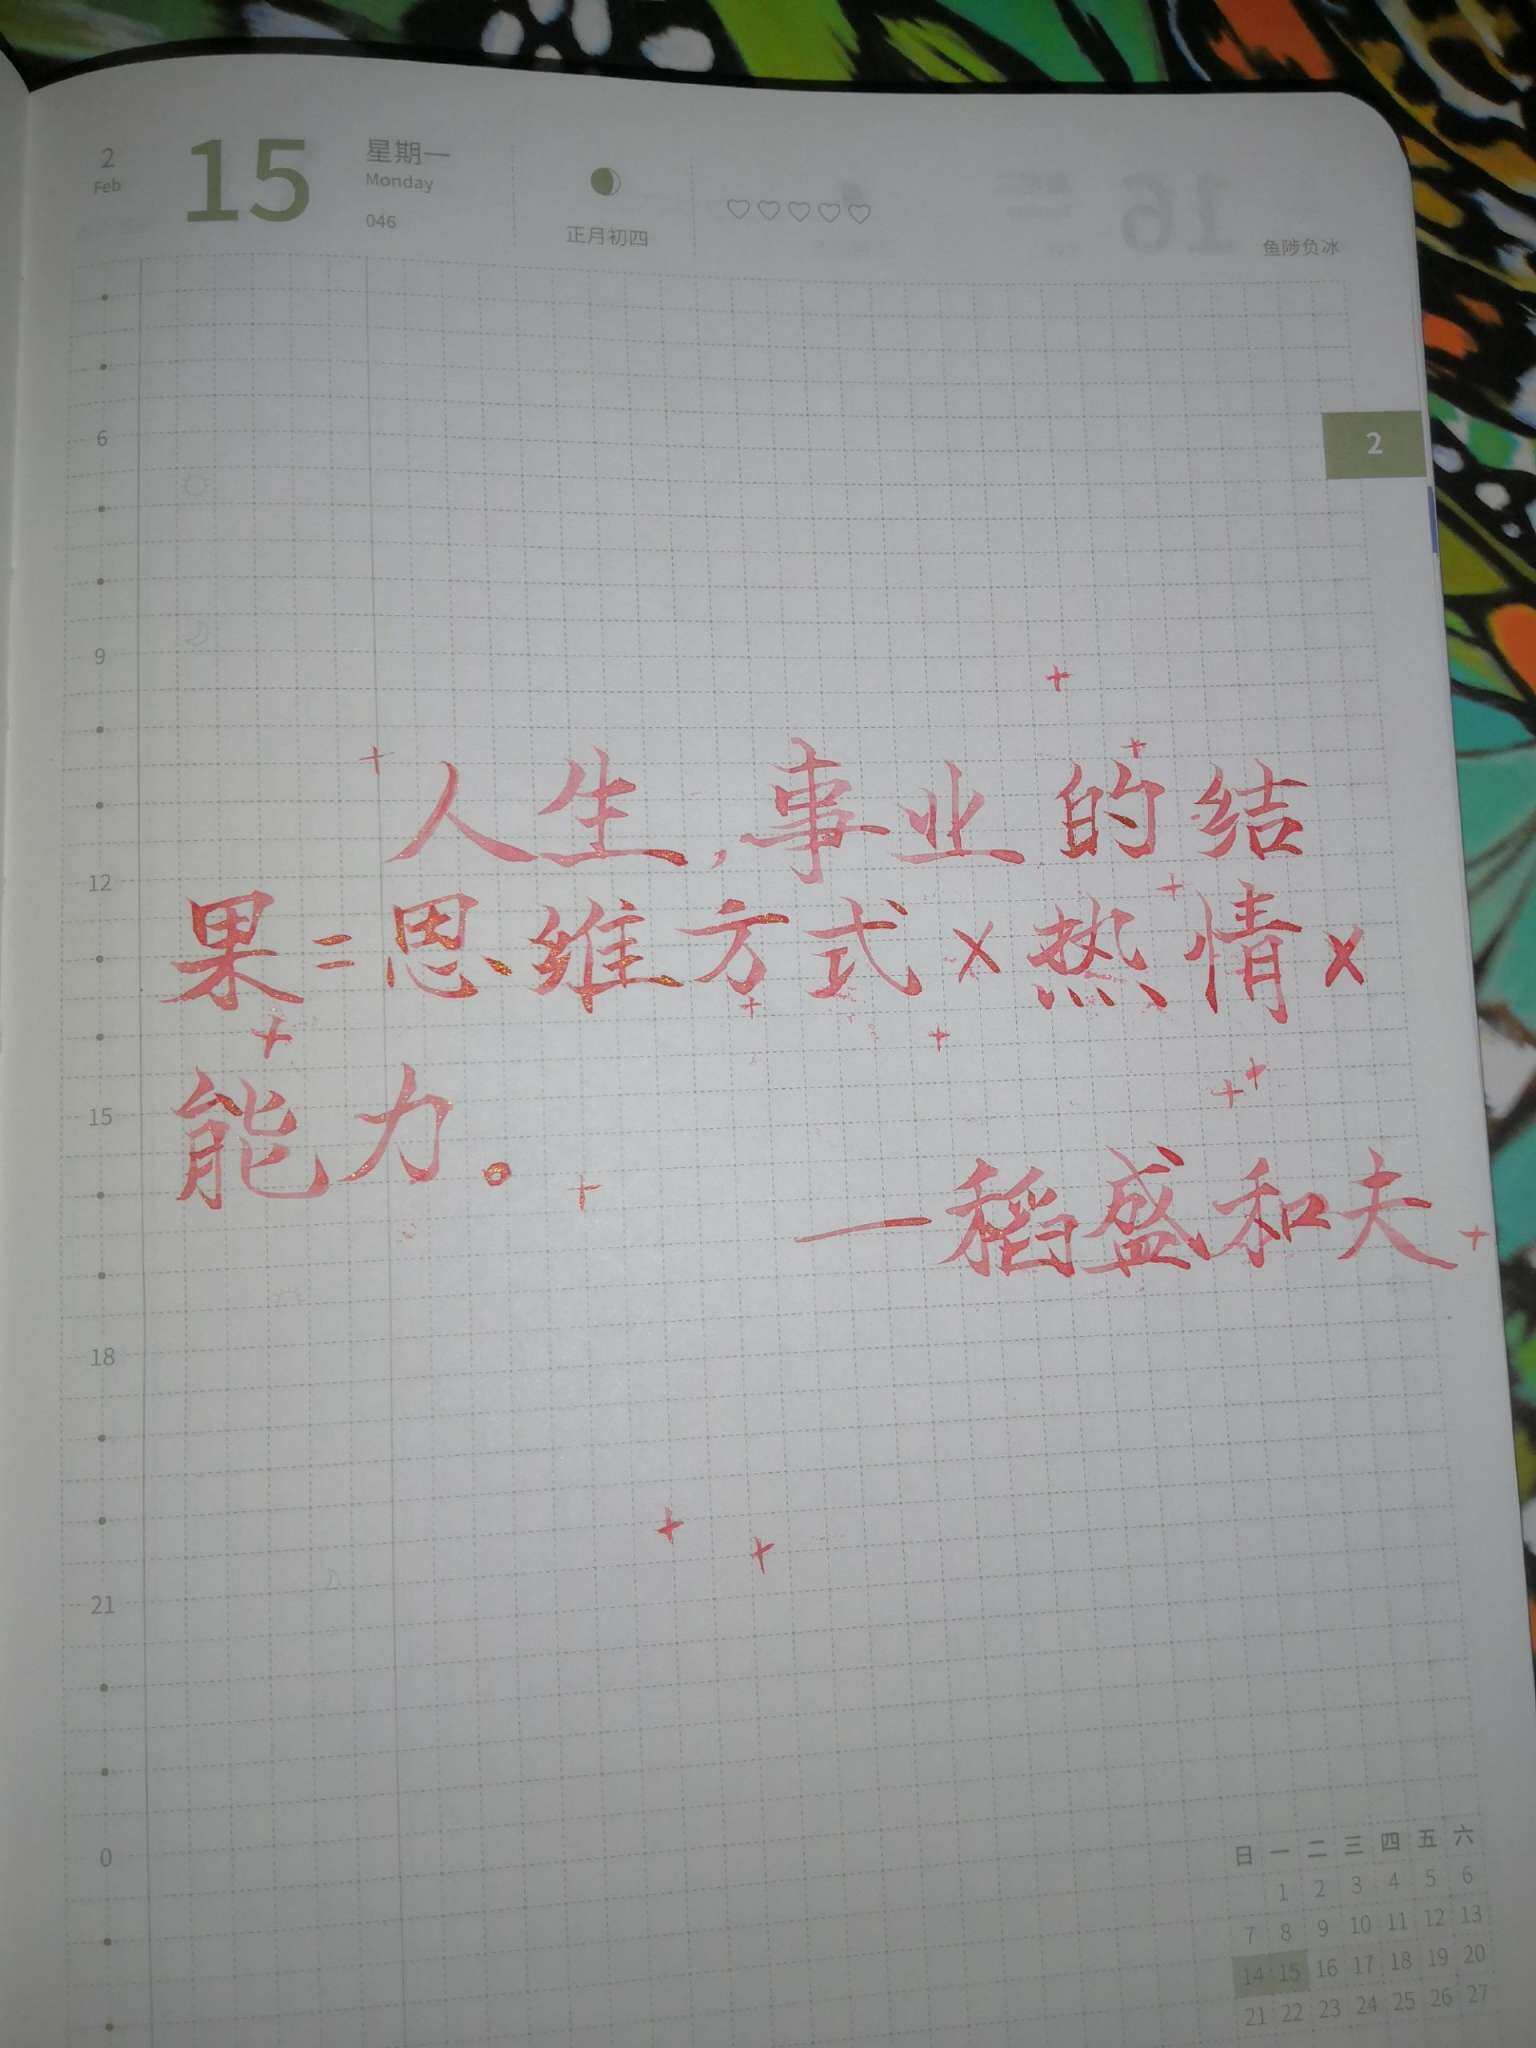 2
Feb
15
星期一
Monday
046
正月初四
鱼陟负冰
2
6
9
12
15
18
21
0
人生,事业的结
果=思维方式×热情×
能力。
—稻盛和夫
日 一 二 三 四 五 六
1 2 3 4 5 6
7 8 9 10 11 12 13
14 15 16 17 18 19 20
21 22 23 24 25 26 27